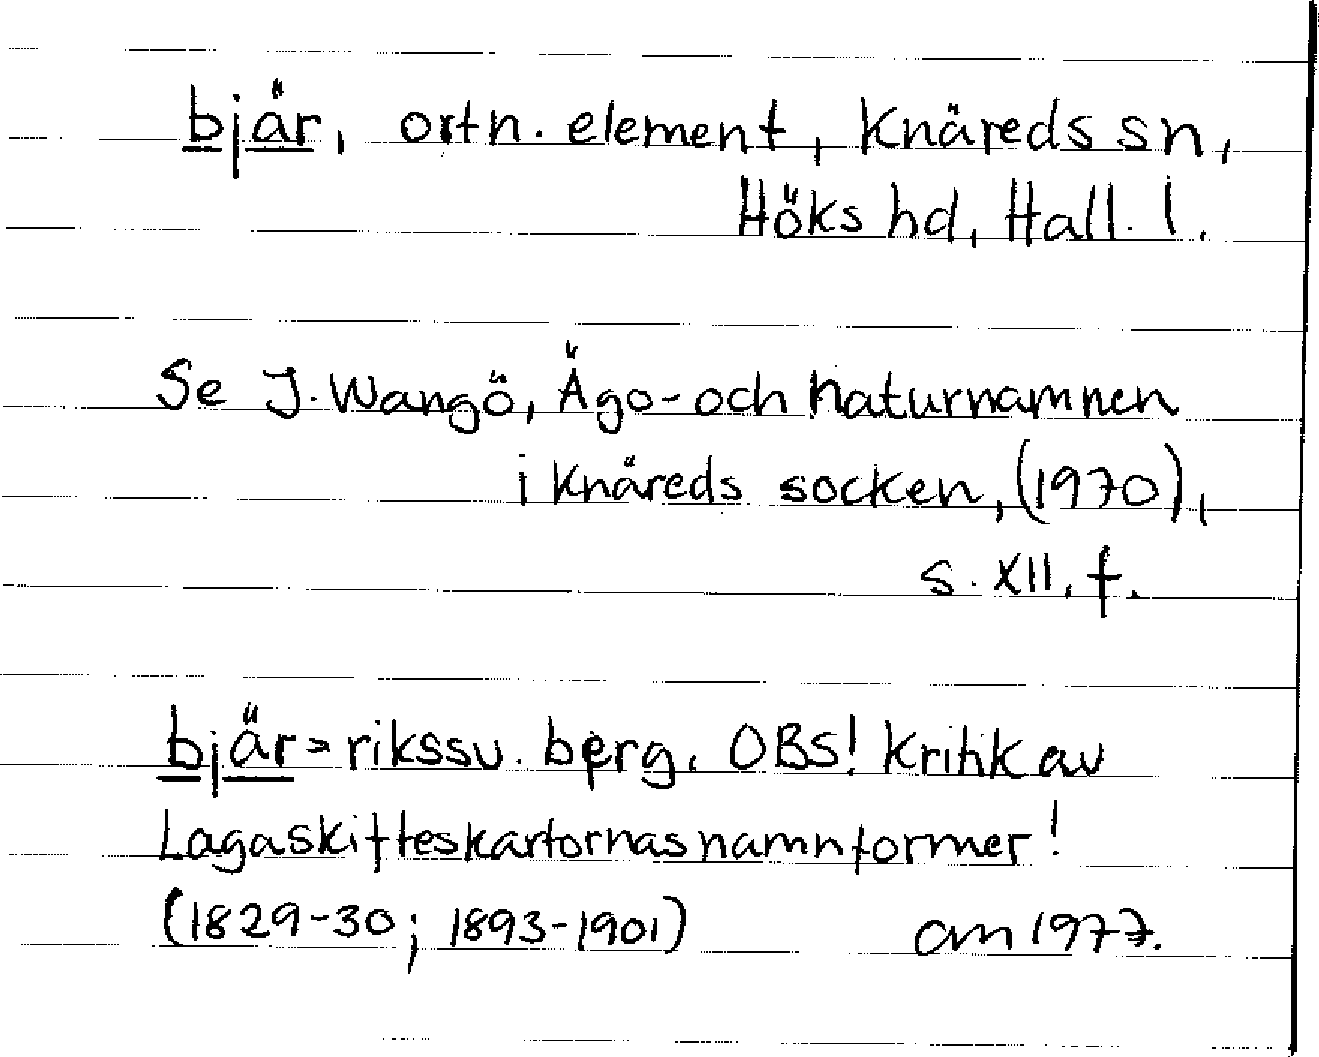 bjär, ortn. element, Knäreds sn,
Höks hd, Hall. l.
Se J. Wangö, Ägo- och naturnamnen
i Knäreds socken, (1970),
s. XII, f.
bjär = rikssv. berg. OBS! Kritik av
Lagaskifteskartornas namnformer!
(1829-30; 1893-1901) am 1977.